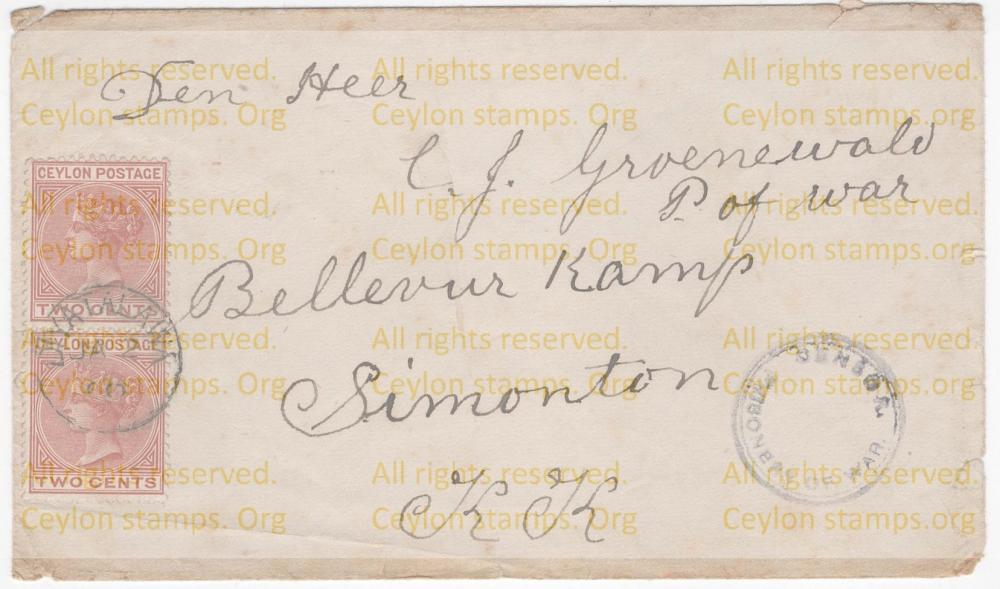 Den Heer
C. J. Groenewald
P. of war
Bellevur Kamp
Simonton
K K
CEYLON POSTAGE
TWO CENTS
CEYLON POSTAGE
TWO CENTS
JA 2
CENSOR.
PRISONERS OF WAR.
All rights reserved. All rights reserved. All rights reserved.
Ceylon stamps. Org Ceylon stamps. Org Ceylon stamps. Org
All rights reserved. All rights reserved. All rights reserved.
Ceylon stamps. Org Ceylon stamps. Org Ceylon stamps. Org
All rights reserved. All rights reserved. All rights reserved.
Ceylon stamps. Org Ceylon stamps. Org Ceylon stamps. Org
All rights reserved. All rights reserved. All rights reserved.
Ceylon stamps. Org Ceylon stamps. Org Ceylon stamps. Org